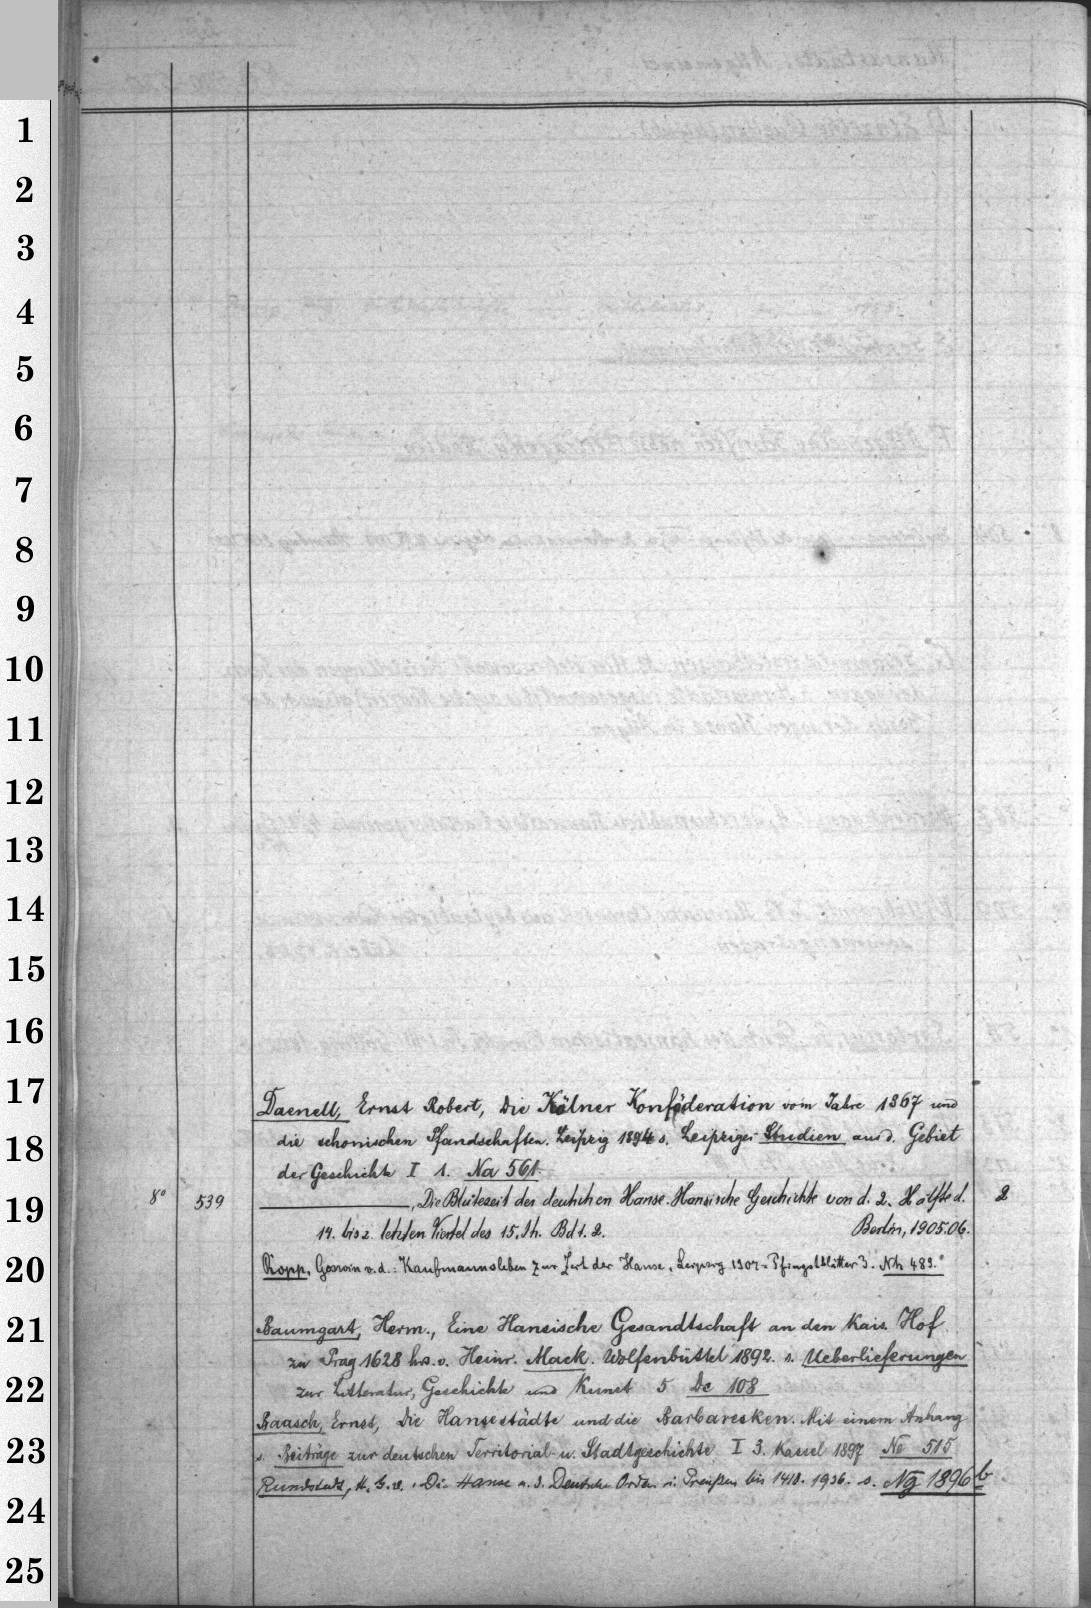 1
2
3
4
5
6
7
8
9
10
11
12
13
14
15
16
17
18
19
20
21
22
23
24
25
Daenell, Ernst Robert, Die Kölner Konföderation vom Jahre 1367 und
die schonischen Pfandschaften. Leipzig 1894 s. Leipziger Studien aus d. Gebiet
der Geschichte I 1. Na 561
8° 539 , Die Blütezeit der deutschen Hanse. Hansische Geschichte von d. 2. Hälfte d. 2
14. bis z. letzten Viertel des 15. Jh. Bd 1. 2. Berlin, 1905.06.
Ropp, Goswin v. d.: Kaufmannsleben zur Zeit der Hanse. Leipzig 1907 = Pfingstblätter 3. Nh 489.°
Baumgart, Herm., Eine Hansische Gesandtschaft an den Kais. Hof
zu Prag 1628 hrs. v. Heinr. Mack. Wolfenbüttel 1892. s. Ueberlieferungen
zur Litteratur, Geschichte und Kunst 5 De 108
Baasch, Ernst, Die Hansestädte und die Barbaresken. Mit einem Anhang
s. Beiträge zur deutschen Territorial- u. Stadtgeschichte I 3. Kassel 1897 Ne 515
Rundstedt, H. G. v., Die Hanse u. d. Deutsche Orden i. Preußen bis 1410. 1936. s. Ng 1896b